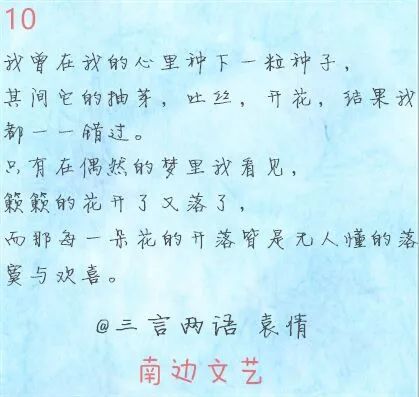 10
我曾在我的心里种下一粒种子，
其间它的抽芽，吐丝，开花，结果我
都一一错过。
只有在偶然的梦里我看见，
簌簌的花开了又落了，
而那每一朵花的开落皆是无人懂的落
寞与欢喜。
@三言两语 哀情
南边文艺